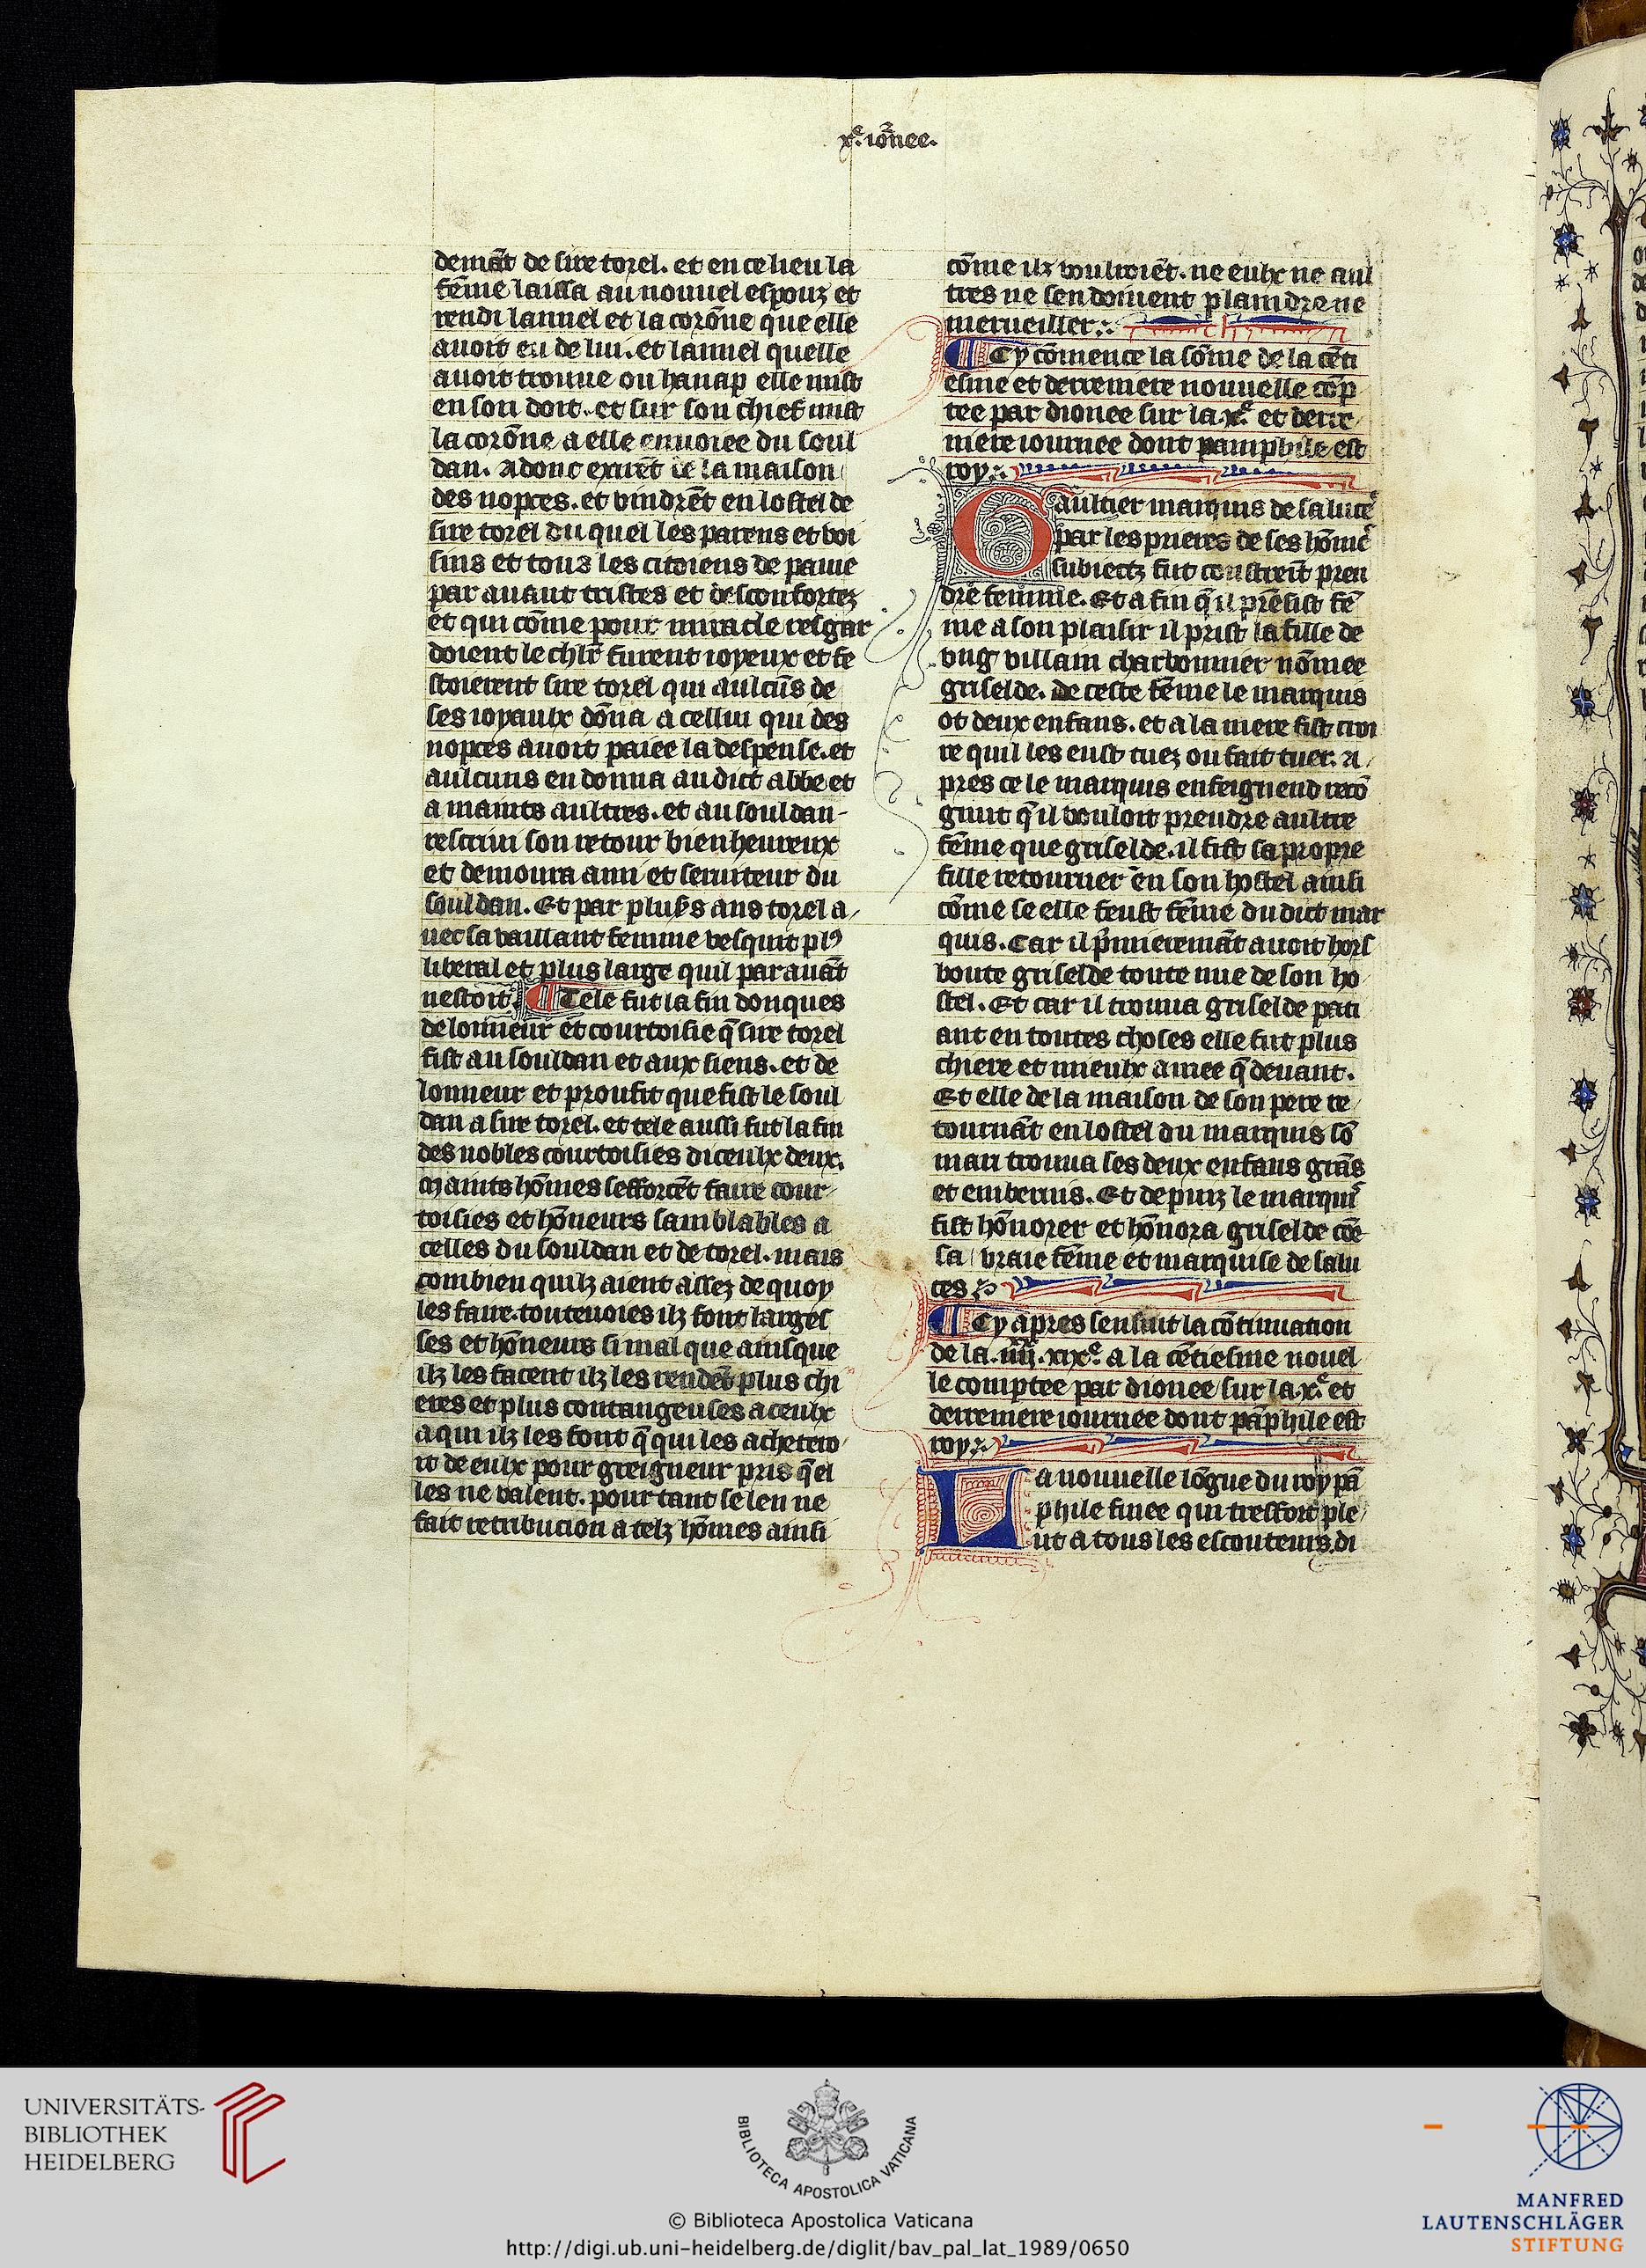 xe. iornee.
demāt de sire torel. et en ce lieu la
fēme laissa au nouuel espouz et
rendi lannel et la corōne que elle
auoit eu de lui. et lannel quelle
auoit trouue ou hanap elle mist
en son doit. et sur son chief mist
la corōne a elle enuoiee du soul
dan. Adonc exirēt de la maison
des nopces. et vindrēt en lostel de
sire torel du quel les parens et voi
sins et tous les citoiens de pauie
par auant tristes et desconfortez
et qui cōme pour miracle resgar
doient le chlr̄ furent ioyeux et fe
stoierent sire torel qui aulcūs de
ses ioyaulx dōna a cellui qui des
nopces auoit paiee la despense. et
aulcuns en donna au dict abbe et
a maints aultres. et au souldan
rescriui son retour bienheureux
et demoura ami et seruiteur du
souldan. Et par plus̄s ans torel a
uec sa vaillant femme vesquit plꝯ
liberal et plus large quil par auāt
nestoit. ¶ Tele fut la fin donques
de lonneur et courtoisie q̄ sire torel
fist au souldan et aux siens. et de
lonneur et proufit que fist le soul
dan a sire torel. et tele aussi fut la fin
des nobles courtoisies diceulx deux.
Maints hōmes sefforcēt faire cour
toisies et hōneurs samblables a
celles du souldan et de torel. mais
combien quilz aient assez de quoy
les faire. toutevoies ilz font larges
ses et hōneurs si mal que ainsque
ilz les facent ilz les rendēt plus chi
eres et plus coutangeuses a ceulx
a qui ilz les font q̄ qui les acheteroi
t de eulx pour greigneur pris q̄ el
les ne valent. pour tant se len ne
fait retribucion a telz hōmes ainsi
cōme ilz vouldroiēt. ne eulx ne aul
tres ne sen doiuent plaindre ne
merueiller.
¶ Cy cōmence la sōme de la cēti
esme et derreniere nouuelle cōp
tee par dionee sur la .xe. et derre
niere iournee dont pamphile est
roy.
Gaultier marquis de saluce
par les prieres de ses hōmes
subiectz fut constreīt pren
dre femme. Et a fin q̄ il prēsist fē
me a son plaisir il prist la fille de
vng villain charbonnier nōmee
griselde. de ceste fēme le marquis
ot deux enfans. et a la mere fist croi
re quil les eust tuez ou fait tuer. A
pres ce le marquis enfeignend reco
gnut q̄ il vouloit prendre aultre
fēme que griselde. il fist sa propre
fille retourner en son hostel ainsi
cōme se elle feust fēme du dict mar
quis. Car il p̄mieremāt auoit hors
boute griselde toute nue de son ho
stel. Et car il trouua griselde pati
ant en toutes choses elle fut plus
chiere et mieulx amee q̄ deuant.
Et elle de la maison de son pere re
tournāt en lostel du marquis sō
mari trouua ses deux enfans grās
et embernis. Et depuiz le marquis
fist hōnorer et hōnora griselde cōe
sa vraie fēme et marquise de salu
ces
¶ Cy apres sensuit la cōtinuation
de la .iiii.xx.xixe. a la cētiesme nouel
le comptee par dionee sur la .xe. et
derreniere iournee dont pāphile est
roy.
La nouuelle lōgue du roy pā
phile finee qui tresfort ple
ut a tous les escouteurs. di
UNIVERSITÄTS-
BIBLIOTHEK
HEIDELBERG
BIBLIOTECA APOSTOLICA VATICANA
© Biblioteca Apostolica Vaticana
http://digi.ub.uni-heidelberg.de/diglit/bav_pal_lat_1989/0650
MANFRED
LAUTENSCHLÄGER
STIFTUNG